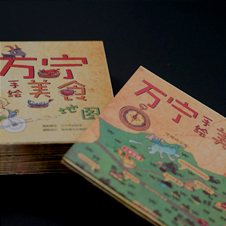 万宁
手绘
美食
地图
万宁
手绘
美